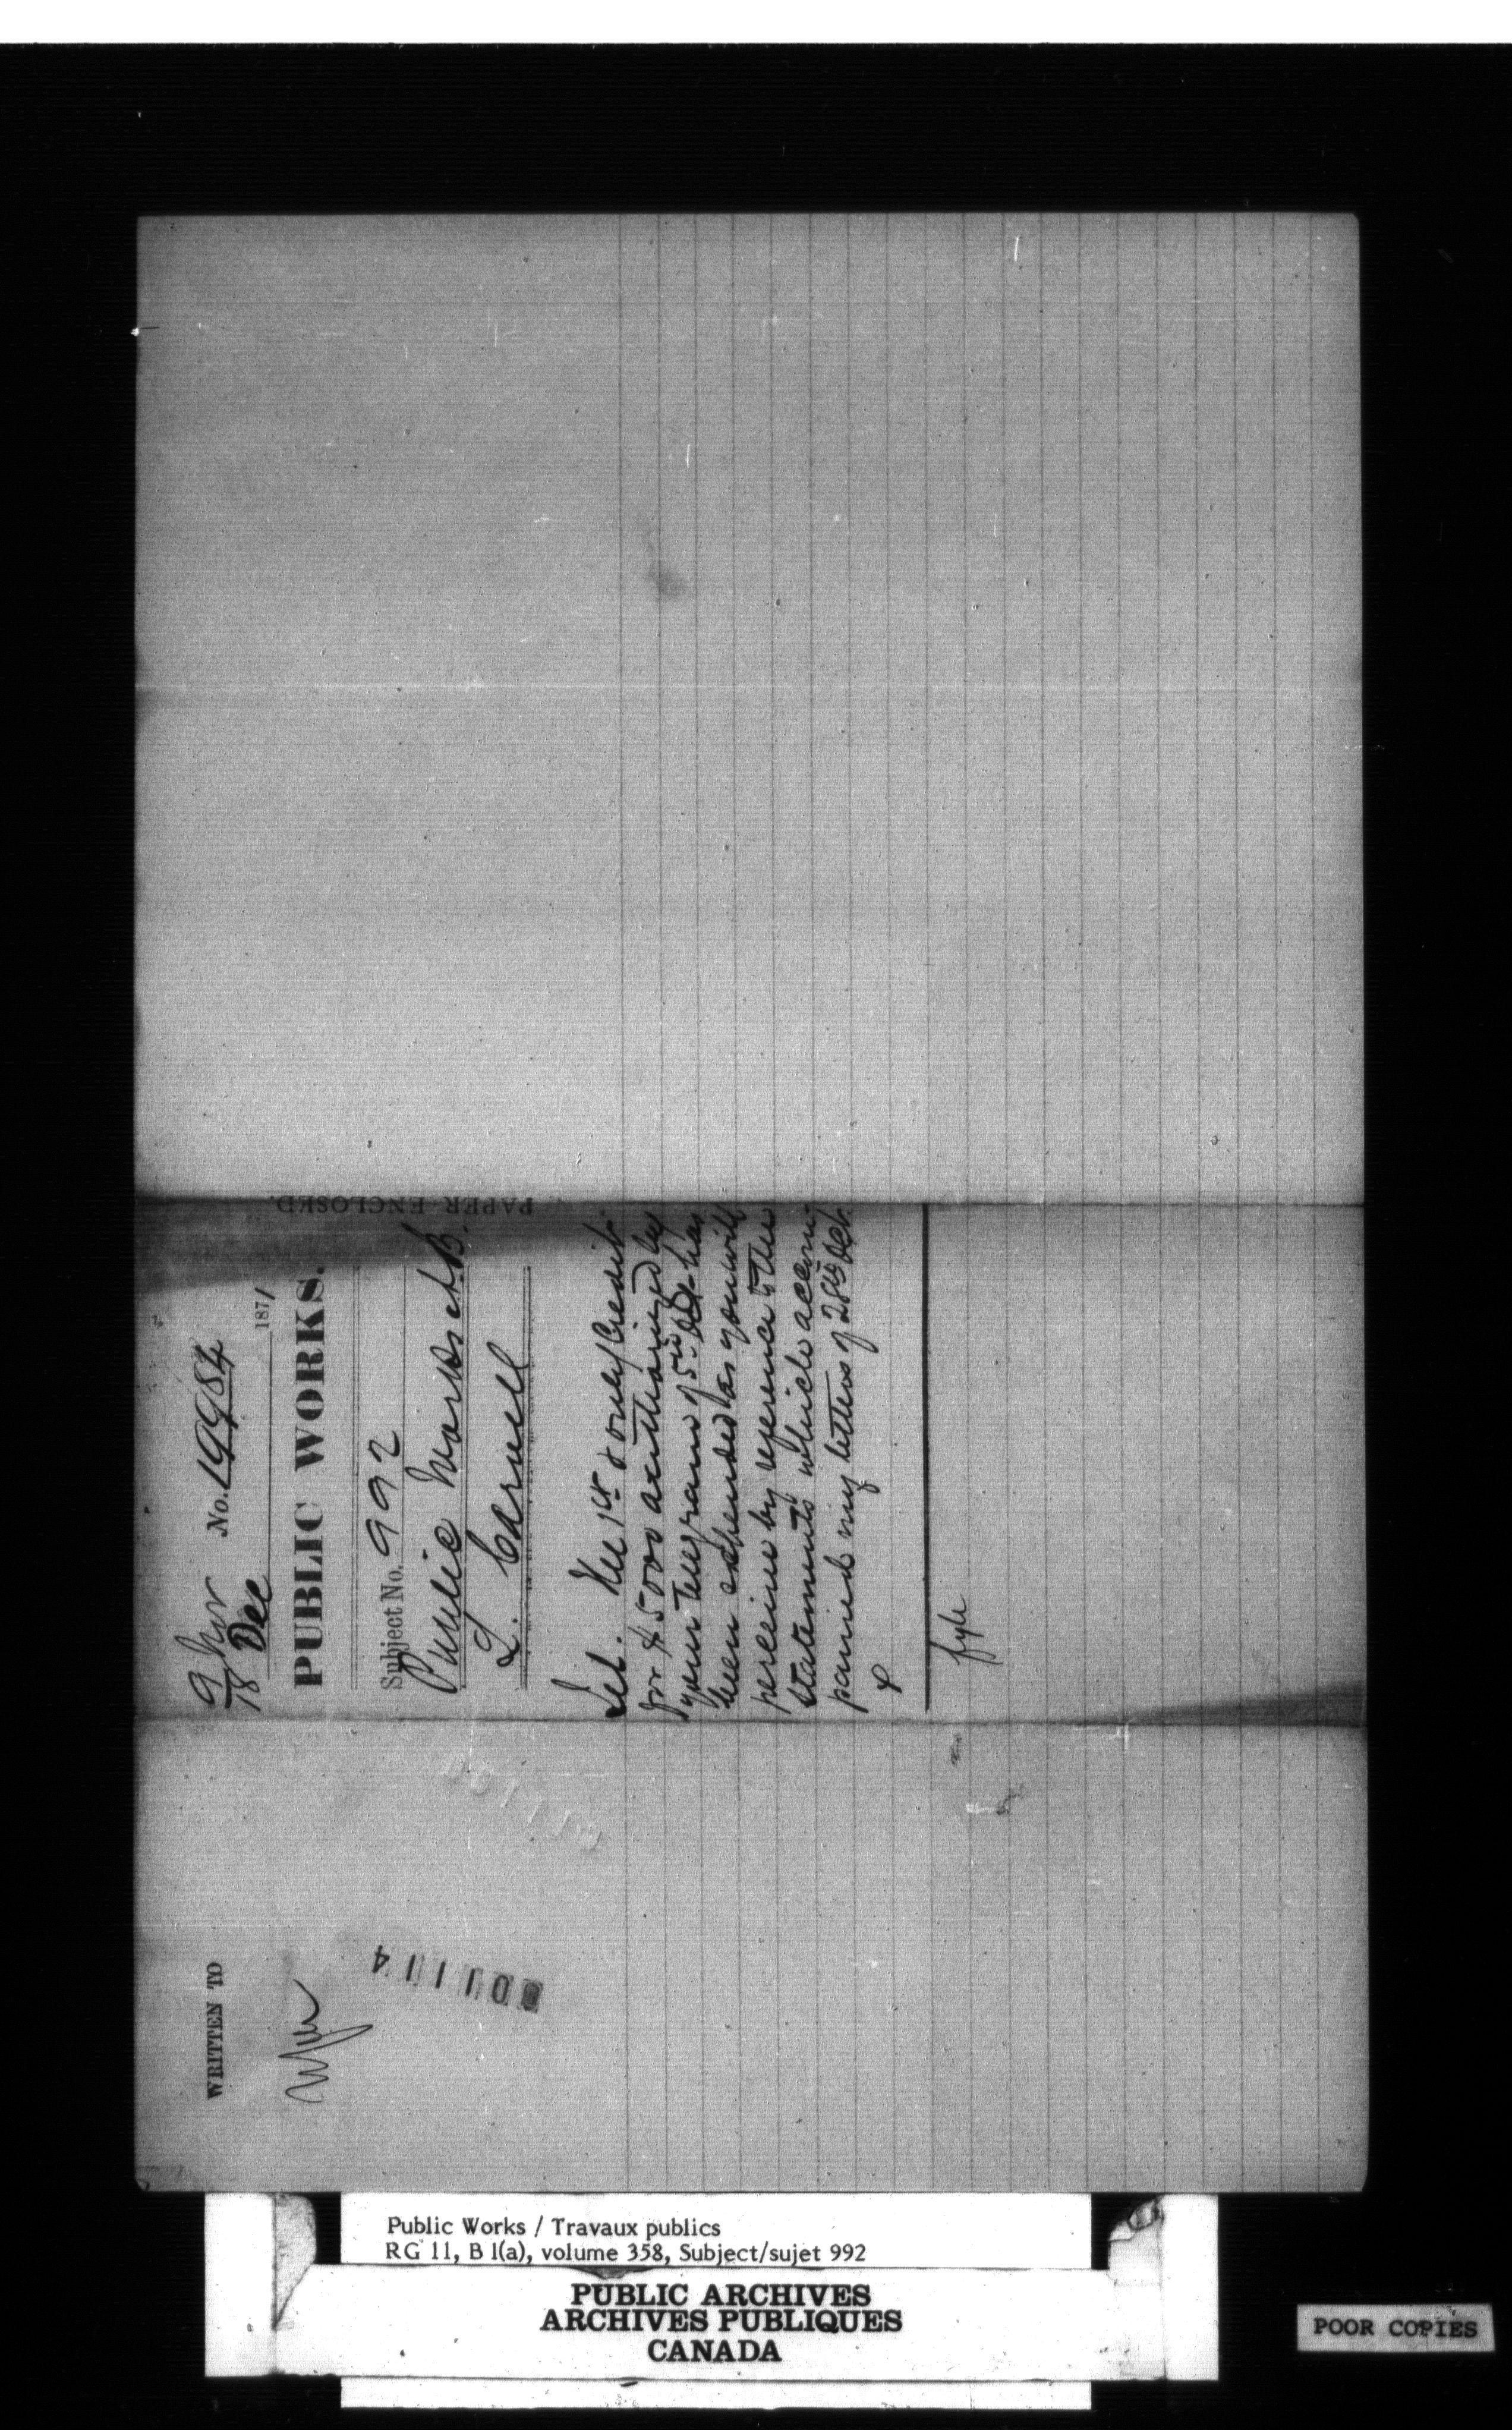 9 Nov
18 Dec
No. 19984
1871
PUBLIC WORKS.
Subject No. 992
Public Works
L. Carvell
PAPER ENCLOSED.
The 1st & only Credit
for $5000 authorized by
your telegram of 5th Oct has
been expended as you will
perceive by reference to the
statements which accom-
panied my letters of 28th Oct.
fyle
WRITTEN TO
001114
Public Works / Travaux publics
RG 11, B 1(a), volume 358, Subject/sujet 992
PUBLIC ARCHIVES
ARCHIVES PUBLIQUES
CANADA
POOR COPIES